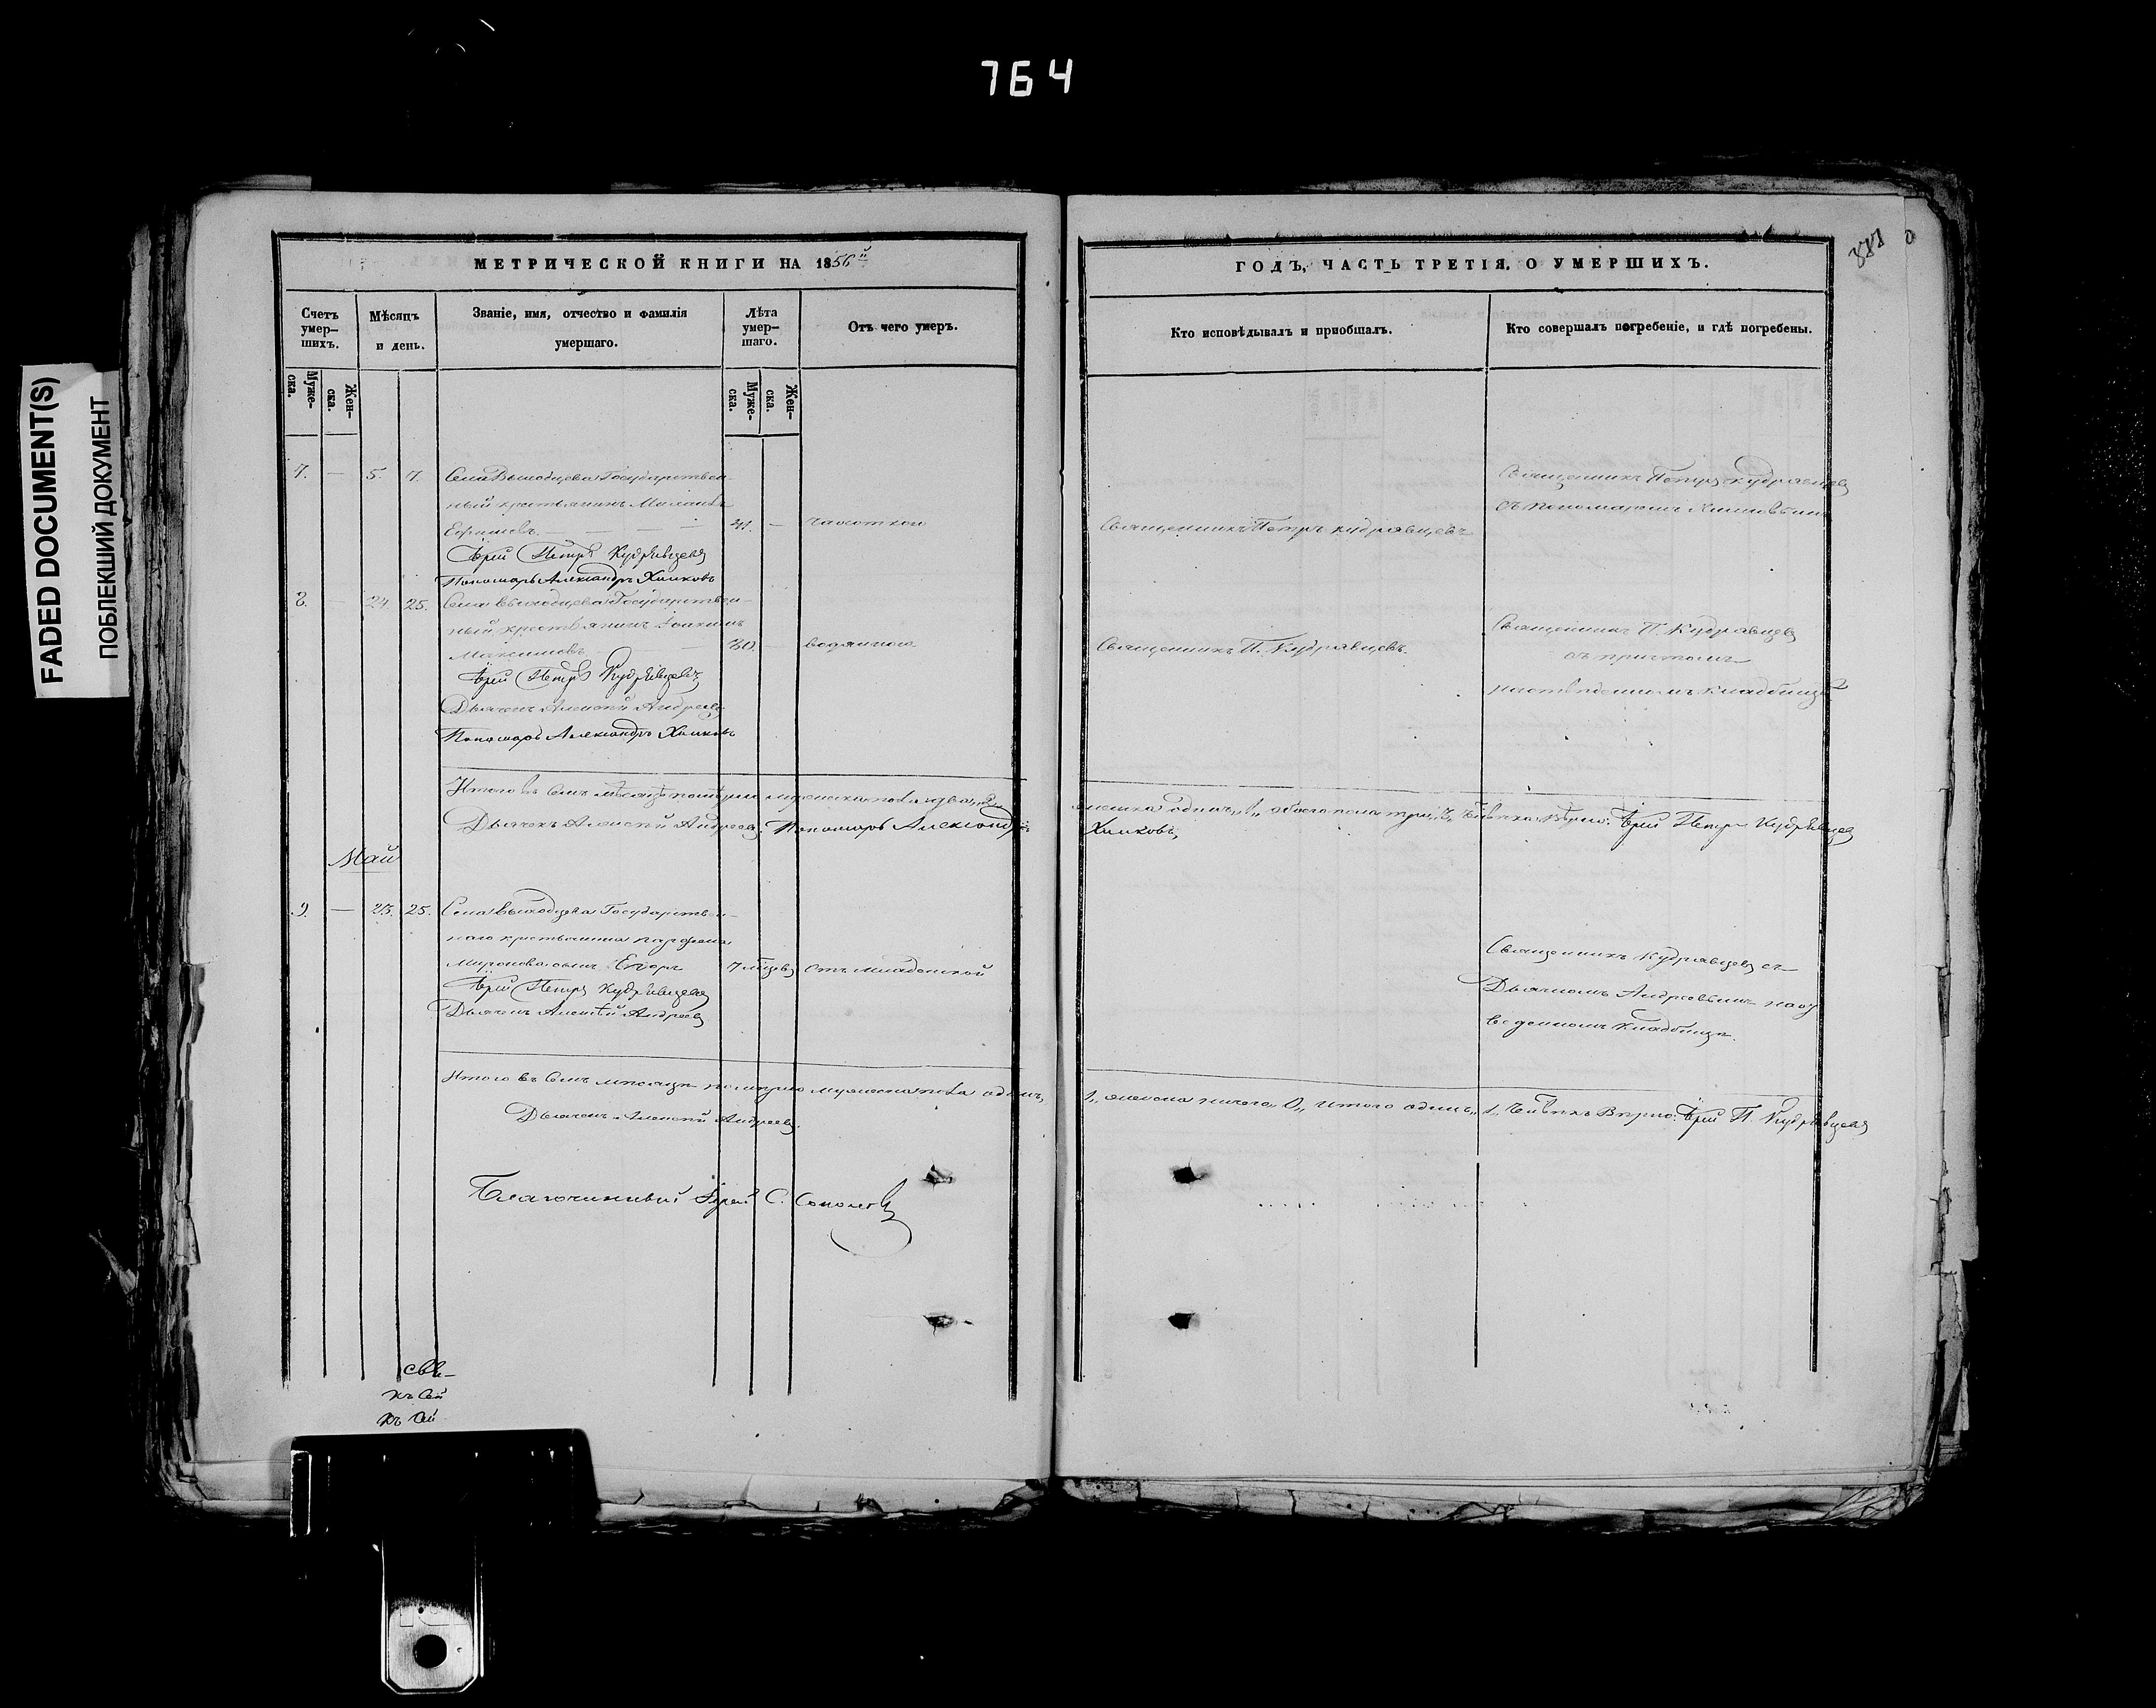 764
FADED DOCUMENT(S)
ПОБЛЕКШИЙ ДОКУМЕНТ
МЕТРИЧЕСКОЙ КНИГИ НА 1856й
Счетъ умер–шихъ.
Мѣсяцъ и день.
Званіе, имя, отчество и фамилія умершаго.
Лѣта умер–шаго.
Отъ чего умеръ.
Муже–ска.
Жен–ска.
Муже–ска.
Жен–ска.
7. — 5. 7. Села Выходцева Государствен-
ный крестьянинъ
Ефимовъ. — — 41. — чахоткою
Іерей Петръ Кудрявцевъ
Пономарь Александръ Химковъ
8. — 24. 25. Села Выходцева Государствен-
ный крестьянинъ Іоакимъ
Максимовъ — — 80. — водяною
Іерей Петръ Кудрявцевъ
Дьячекъ Алексѣй Андреевъ
Пономарь Александръ Химковъ
Итого въ семъ мѣсяцѣ померло мужеска пола два „2„
Дьячекъ Алексѣй Андреевъ. Пономарь Александръ
Май
9. — 23. 25. Села Выходцева Государствен-
наго крестьянина Парфена
Миронова сынъ Егоръ 7 мѣсяцевъ отъ младенской
Іерей Петръ Кудрявцевъ
Дьячекъ Алексѣй Андреевъ
Итого въ семъ мѣсяцѣ померло мужеска пола одинъ,
Дьячекъ Алексѣй Андреевъ.
Благочинный Іерей С. Соколовъ
свѣ-
къ сей
къ сей
ГОДЪ, ЧАСТЬ ТРЕТІЯ, О УМЕРШИХЪ.
Кто исповѣдывалъ и пріобщалъ.
Кто совершалъ погребеніе, и гдѣ погребены.
Священникъ Петръ Кудрявцевъ
съ пономаремъ Химковымъ
Священникъ Петръ Кудрявцевъ
Священникъ П. Кудрявцевъ
съ причтомъ
Священникъ П. Кудрявцевъ.
кладбищѣ
женска одинъ „1„ обоего пола три „3„ вѣрно: Іерей Петръ Кудрявцевъ
Химковъ„
Священникъ Кудрявцевъ съ
Дьячкомъ Андреевымъ на от
веденномъ кладбищѣ.
1„ женска ничего 0„ итого одинъ „1„ вѣрно: Іерей П. Кудрявцевъ